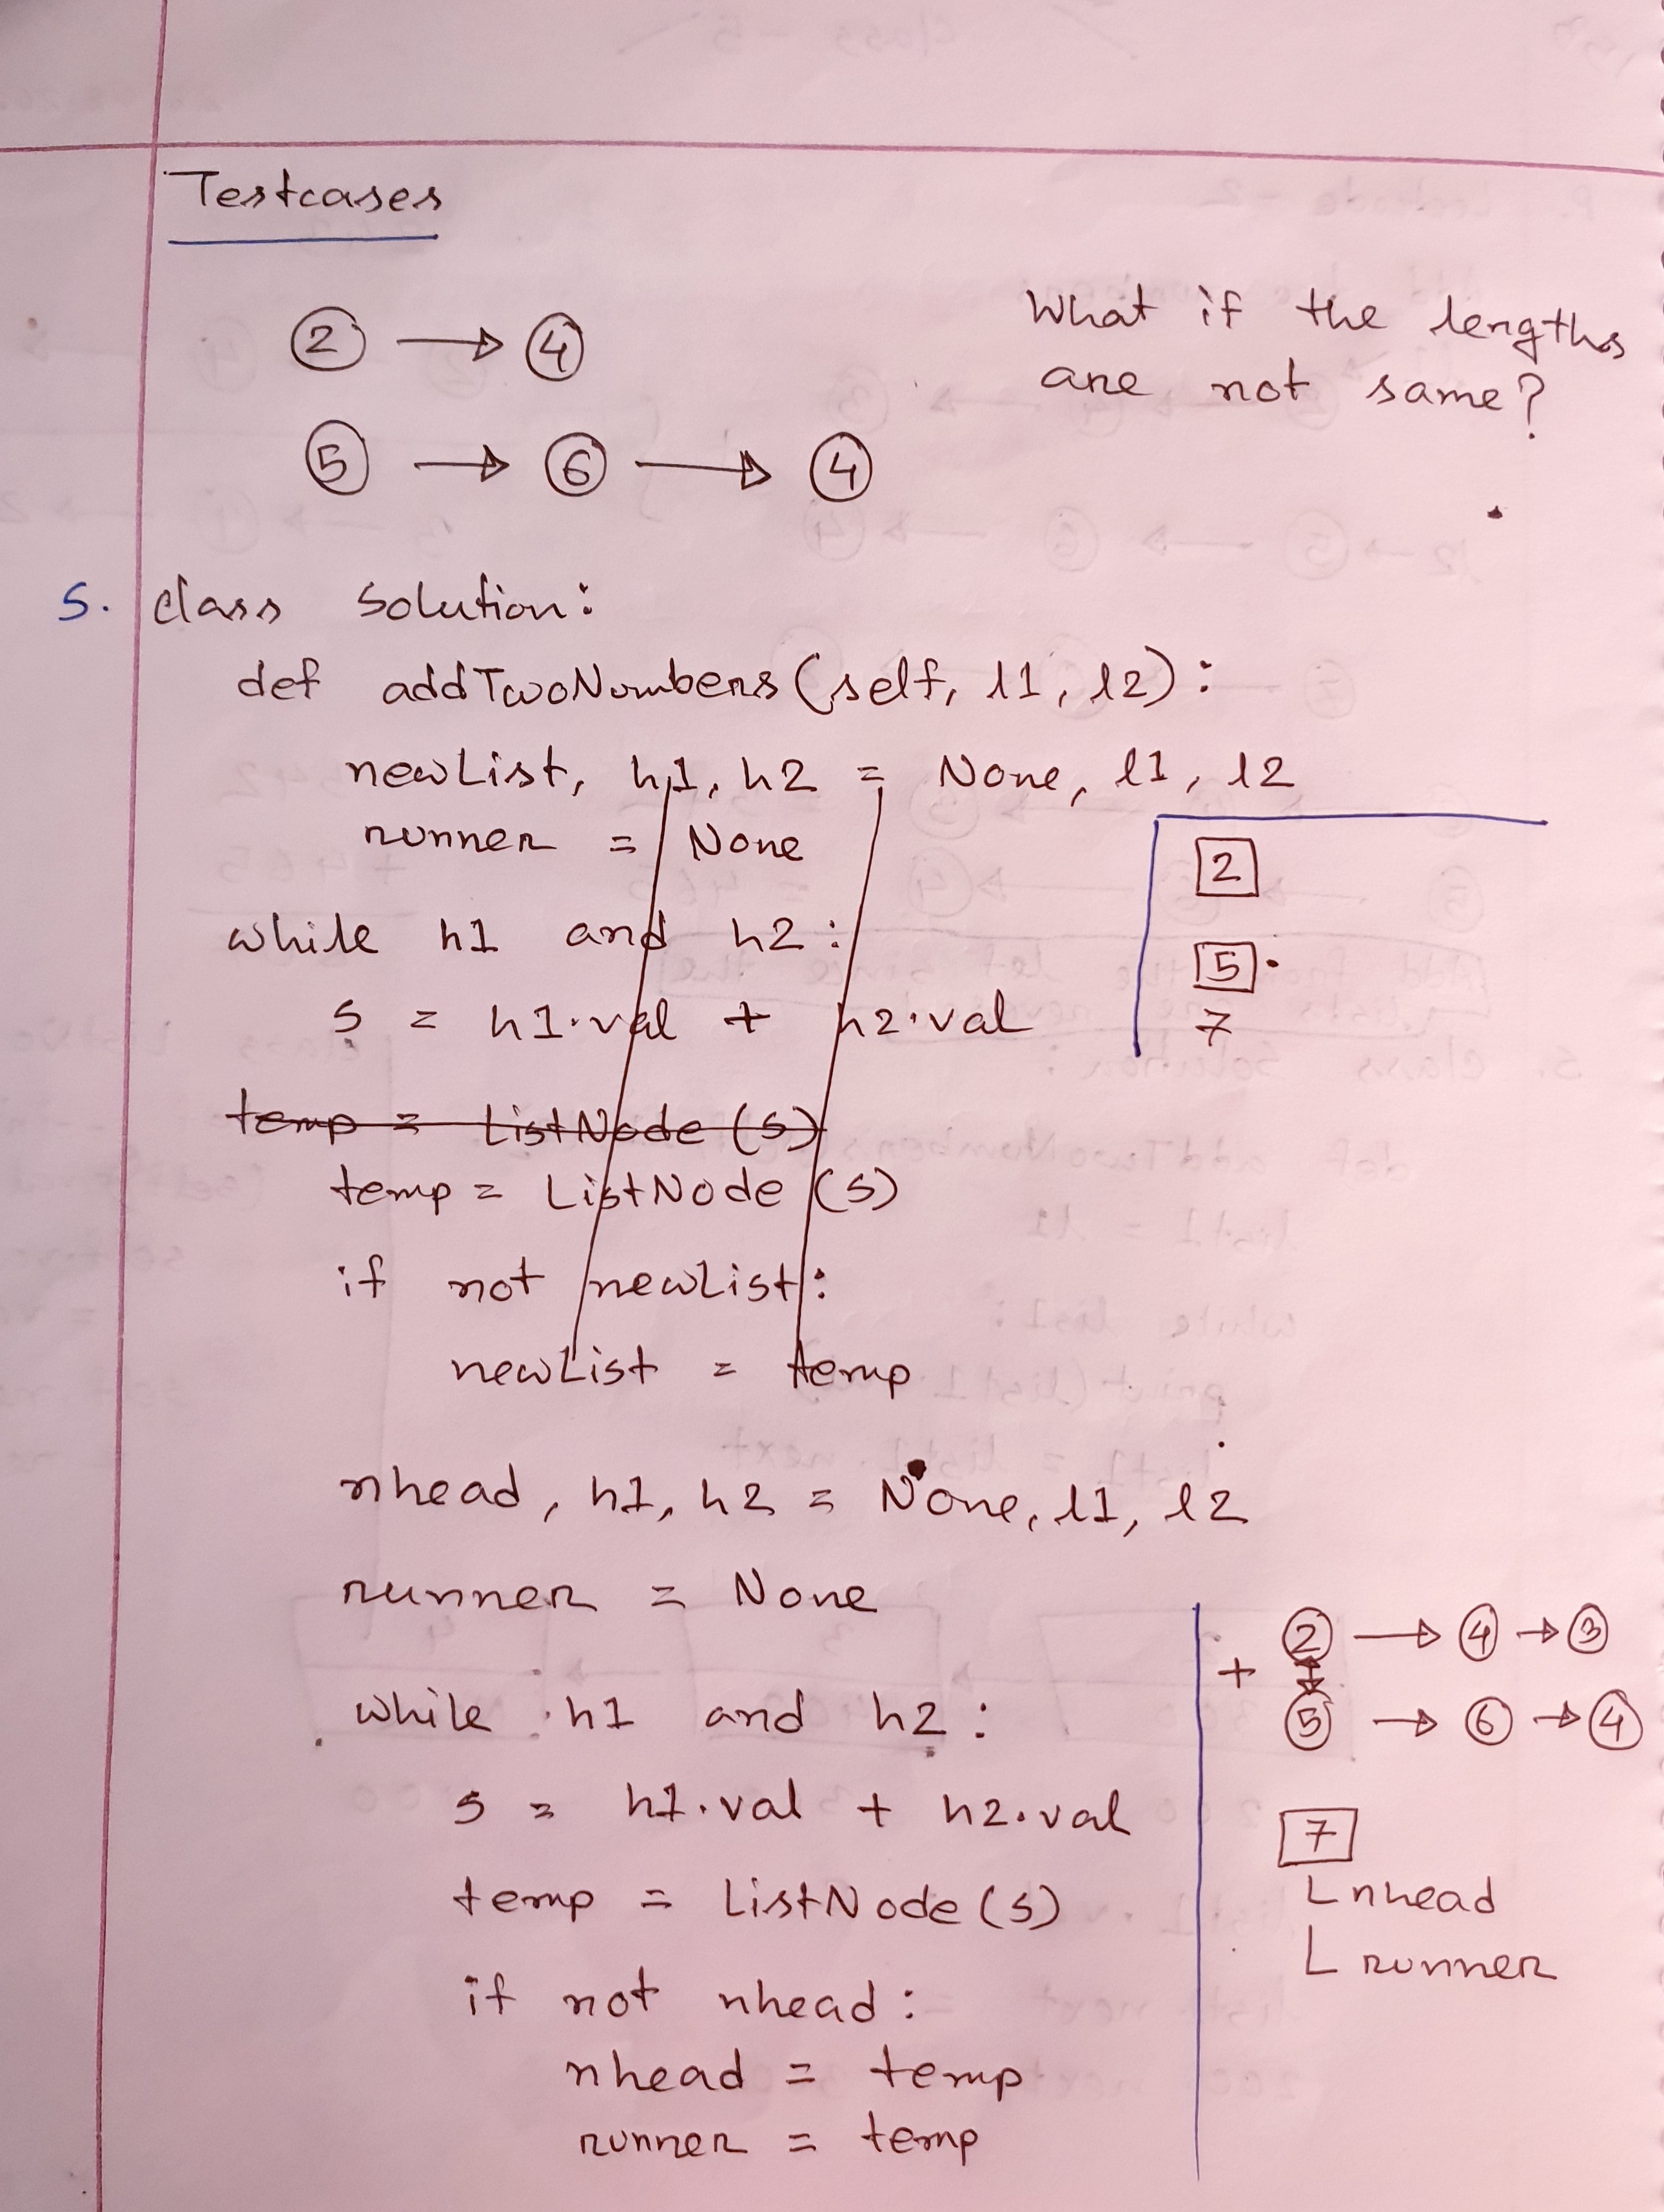 Testcases
2 → 4
What if the lengths
are not same?
5 → 6 → 4
S. class Solution:
def addTwoNumbers(self, l1, l2):
newList, h1, h2 = None, l1, l2
runner = None
2
while h1 and h2:
5
s = h1.val + h2.val
7
temp = ListNode(s)
temp = ListNode(s)
if not newList:
newList = temp
nhead, h1, h2 = None, l1, l2
runner = None
2 → 4 → 3
+
while h1 and h2:
5 → 6 → 4
s = h1.val + h2.val
7
temp = ListNode(s)
nhead
runner
if not nhead:
nhead = temp
runner = temp